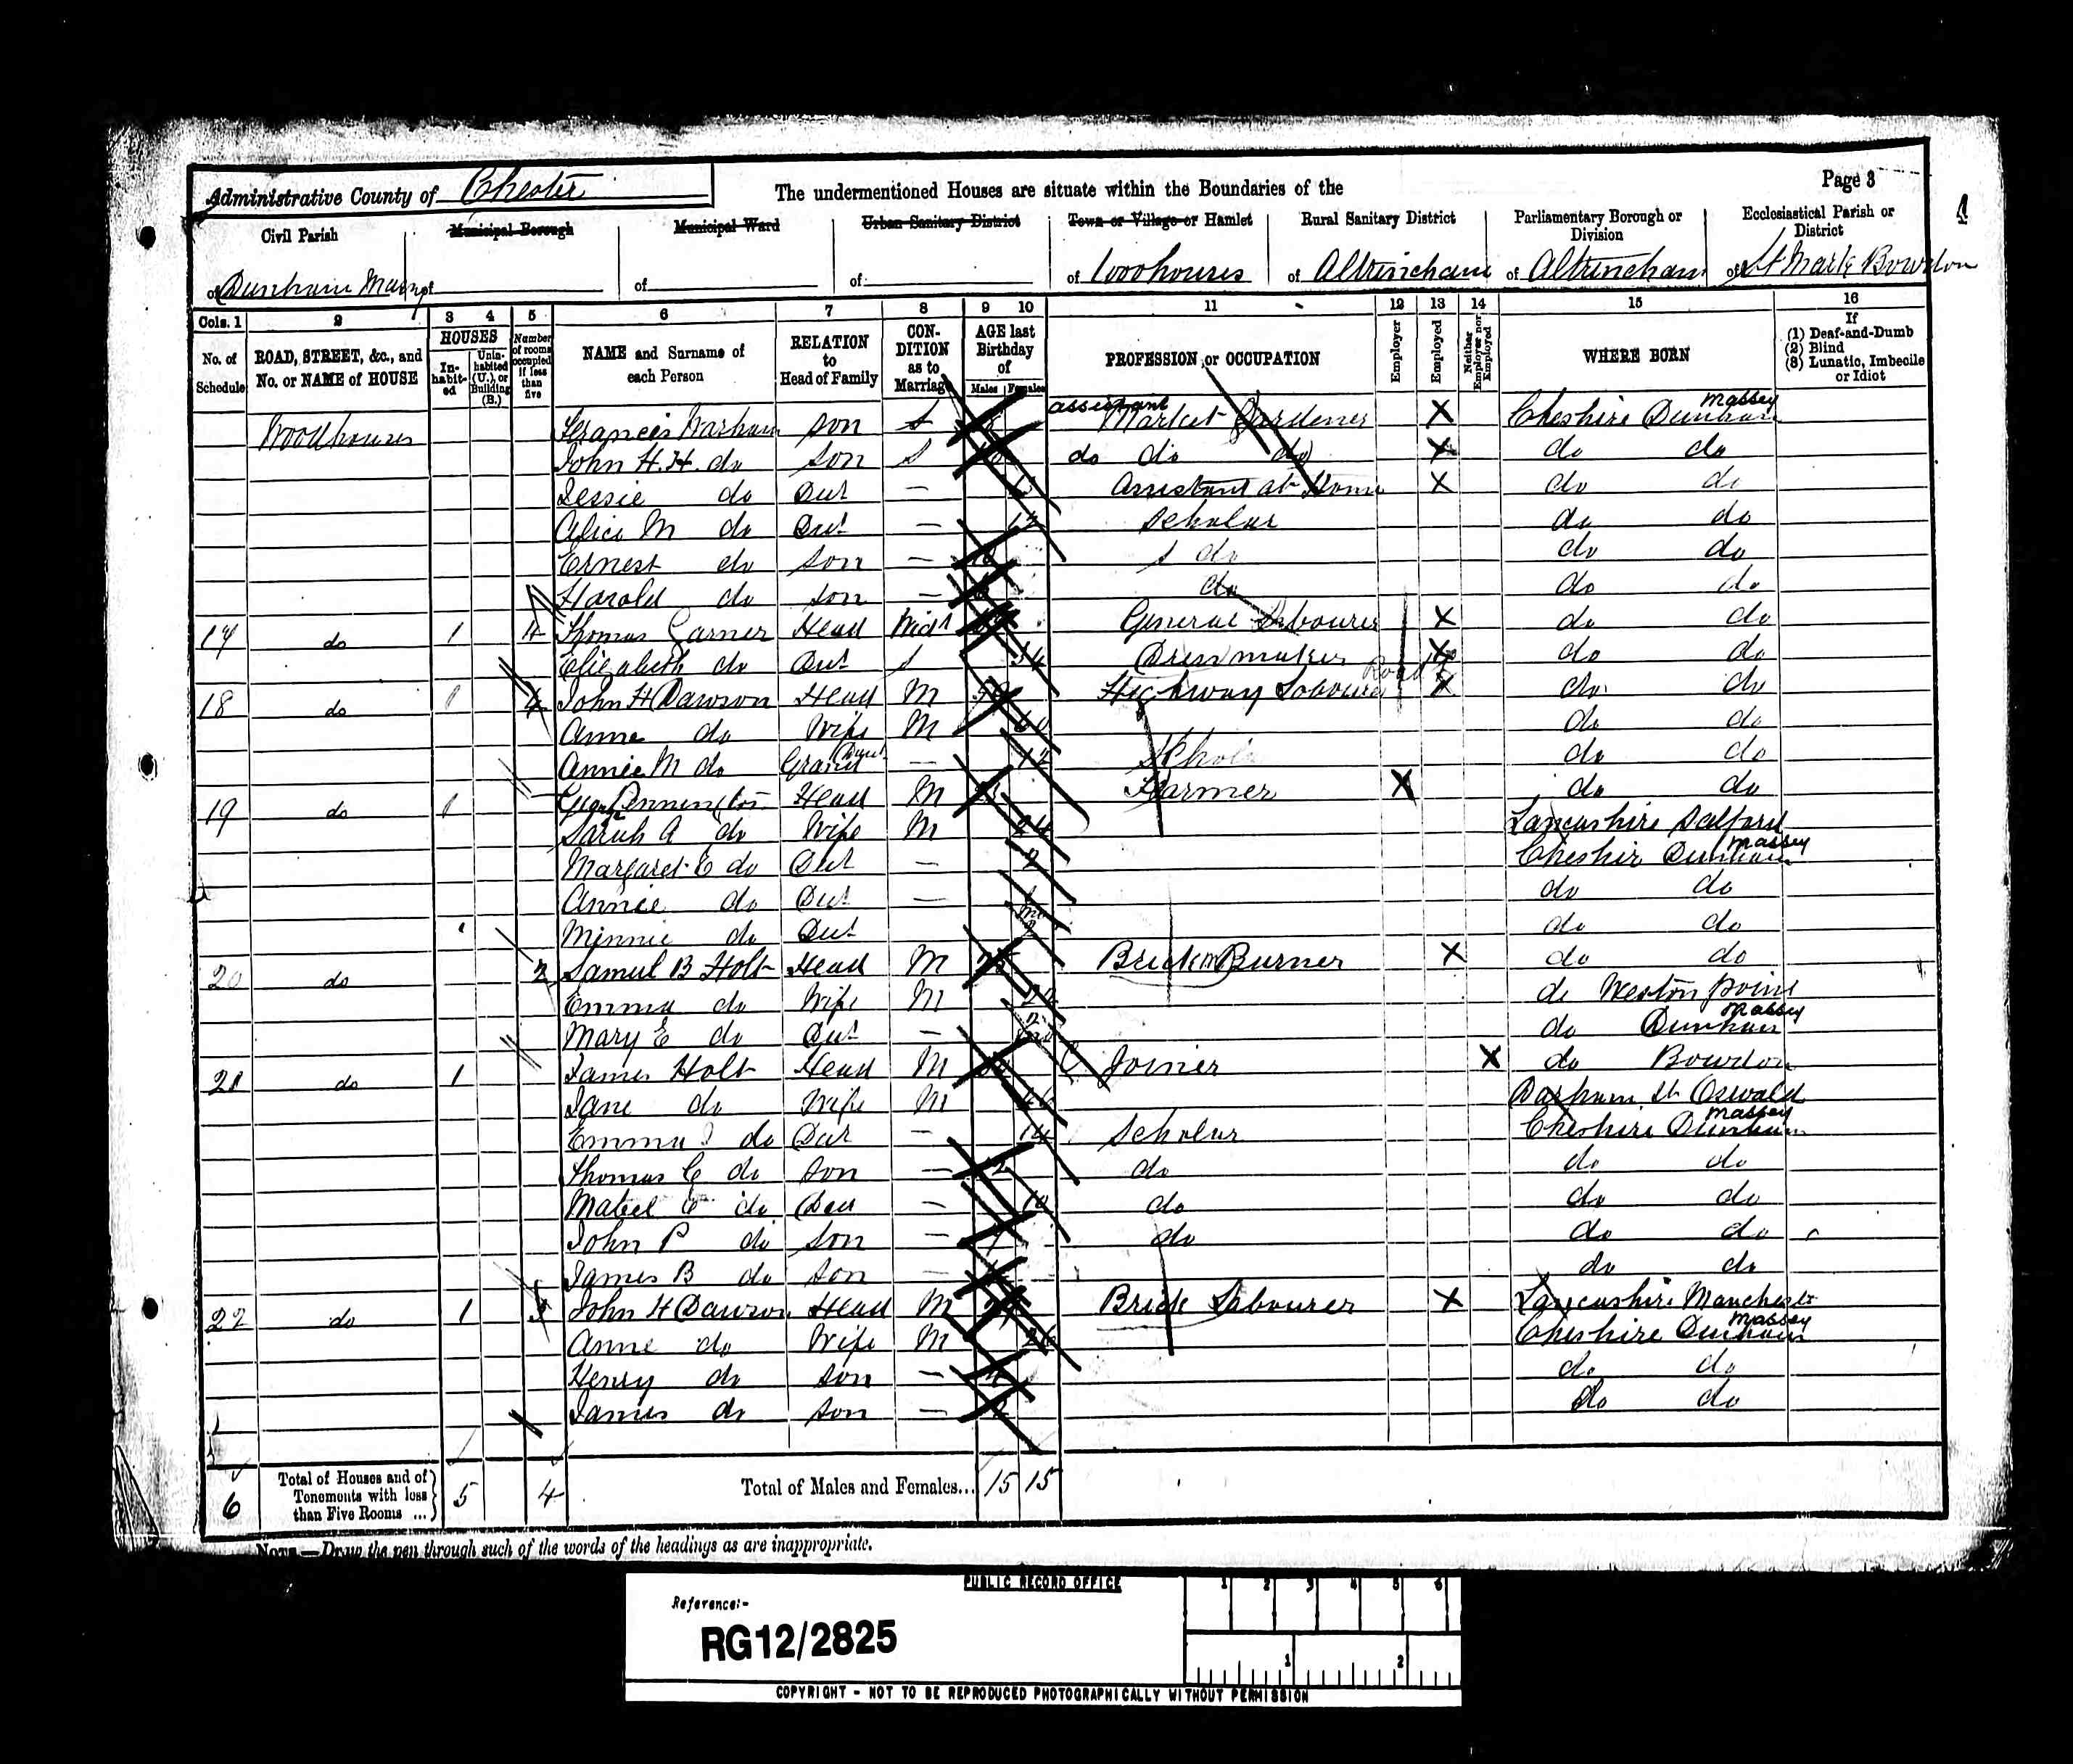 Administrative County of Chester
The undermentioned Houses are situate within the Boundaries of the
Page 3
Civil Parish
Municipal Borough
Municipal Ward
Urban Sanitary District
Town or Village or Hamlet
Rural Sanitary District
Parliamentary Borough or Division
Ecclesiastical Parish or District
of Dunham Massey
of
of
of
of Woodhouses
of Altrincham
of Altrincham
of St Marks Bowdon
Cols. 1 2 3 4 5 6 7 8 9 10 11 12 13 14 15 16
No. of Schedule
ROAD, STREET, &c., and No. or NAME of HOUSE
HOUSES
In-habit-ed
Unin-habited (U.), or Building (B.)
Number of rooms occupied if less than five
NAME and Surname of each Person
RELATION to Head of Family
CON-DITION as to Marriage
AGE last Birthday of
Males Females
PROFESSION or OCCUPATION
Employer
Employed
Neither Employer nor Employed
WHERE BORN
If
(1) Deaf-and-Dumb
(2) Blind
(3) Lunatic, Imbecile or Idiot
Woodhouses Francis Warham son S assistant Market Gardener X Cheshire Dunham Massey
John H. H. do son S do do do X do do
Jessie do Dur — Assistant at Home X do do
Alice M do Dur — 12 Scholar do do
Ernest do son — do do do
Harold do son — do do do
17 do 1 4 Thomas Garner Head Widr General Labourer X do do
Elizabeth do Dur S 34 Dressmaker X do do
18 do 1 4 John H Dawson Head M Highway Labourer Road X do do
Anne do Wife M 60 do do
Annie M do Grand Daur — 12 Schol do do
19 do 1 Pennington Head M Farmer X do do
Sarah A do Wife M 24 Lancashire Salford
Margaret E do Dur — 2 Cheshir Dunham Massey
Annie do Dur — 1 do do
Minnie do Dur do do
20 do 2 Samuel B Holt Head M Brick Burner X do do
Emma do Wife M do Weston point
Mary E do Dur — do Dunham Massey
21 do 1 James Holt Head M Joiner X do Bowdon
Jane do Wife M 46 Durham St Oswald
Emma J do Dur — 14 Scholar Cheshire Dunham Massey
Thomas C do son — 12 do do do
Mabel E do Dau — 10 do do do
John P do son — 7 do do do
James B do son — do do
22 do 1 3 John H Dawson Head M Brick Labourer X Lancashire Manchester
Anne do Wife M 26 Cheshire Dunham Massey
Henry do son — 4 do do
James do son — 2 do do
6
Total of Houses and of Tenements with less than Five Rooms ... 5 4
Total of Males and Females... 15 15
NOTE.—Draw the pen through such of the words of the headings as are inappropriate.
PUBLIC RECORD OFFICE
Reference:-
RG12/2825
1 2 3 4 5 6
1 2
COPYRIGHT - NOT TO BE REPRODUCED PHOTOGRAPHICALLY WITHOUT PERMISSION